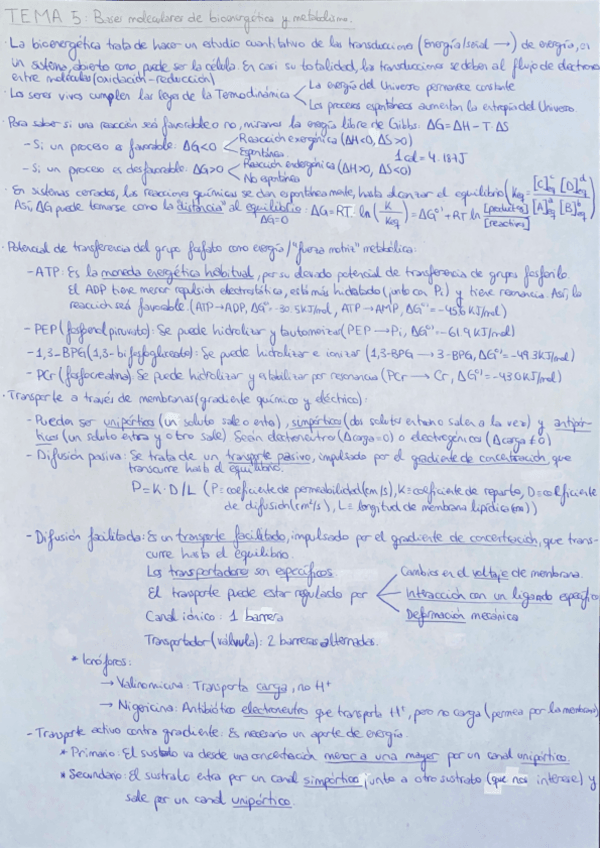 TEMA 5: Bases moleculares de bioenergética y metabolismo.
· La bioenergética trata de hacer un estudio cuantitativo de las transducciones (Energía/señal →) de energía, en
un sistema abierto como puede ser la célula. En casi su totalidad, las transducciones se deben al flujo de electrones
entre moléculas (oxidación-reducción)
· Los seres vivos cumplen las leyes de la Termodinámica
La energía del Universo permanece constante
Los procesos espontáneos aumentan la entropía del Universo.
· Para saber si una reacción será favorable o no, miramos la energía libre de Gibbs. ΔG=ΔH-T·ΔS
- Si un proceso es favorable. ΔG<0
Reacción exergónica (ΔH<0, ΔS>0)
Espontánea
- Si un proceso es desfavorable. ΔG>0
Reacción endergónica (ΔH>0, ΔS<0)
No espontánea
1 cal = 4.187J
· En sistemas cerrados, las reacciones químicas se dan espontáneamente, hasta alcanzar el equilibrio (Keq = [C]^c eq [D]^d eq / [A]^a eq [B]^b eq)
Así, ΔG puede tomarse como la "distancia" al equilibrio: ΔG=RT·ln(K/Keq)=ΔG°'+RT ln [productos]/[reactivos]
ΔG=0
· Potencial de transferencia del grupo fosfato como energía/"fuerza motriz" metabólica:
- ATP: Es la moneda energética habitual, por su elevado potencial de transferencia de grupos fosforilo.
El ADP tiene menor repulsión electrostática, está más hidratado (junto con Pi) y tiene resonancia. Así, la
reacción será favorable. (ATP→ADP, ΔG°'=-30.5KJ/mol, ATP→AMP, ΔG°'=-45.6 KJ/mol)
- PEP (fosfoenolpiruvato): Se puede hidrolizar y tautomerizar (PEP→Pi, ΔG°'=-61.9 KJ/mol)
- 1,3-BPG (1,3-bifosfoglicerato): Se puede hidrolizar e ionizar (1,3-BPG → 3-BPG, ΔG°'=-49.3KJ/mol)
- PCr (fosfocreatina): Se puede hidrolizar y estabilizar por resonancia (PCr → Cr, ΔG°'=-43.0KJ/mol)
· Transporte a través de membranas (gradiente químico y eléctrico):
- Pueden ser unipórticos (un soluto sale o entra), simpórticos (dos solutos entran o salen a la vez) y antipór-
ticos (un soluto entra y otro sale) Serán electroneutro (Δcarga=0) o electrogénico (Δcarga≠0)
- Difusión pasiva: Se trata de un transporte pasivo, impulsado por el gradiente de concentración, que
transcurre hasta el equilibrio.
P=K·D/L (P=coeficiente de permeabilidad(cm/s), K=coeficiente de reparto, D=coeficiente
de difusión(cm²/s), L=longitud de membrana lipídica(cm))
- Difusión facilitada: Es un transporte facilitado, impulsado por el gradiente de concentración, que trans-
curre hasta el equilibrio.
Los transportadores son específicos.
El transporte puede estar regulado por
Cambios en el voltaje de membrana.
Interacción con un ligando específico
Deformación mecánica
Canal iónico: 1 barrera
Transportador (válvula): 2 barreras alternadas.
* Ionóforos:
→ Valinomicina: Transporta carga, no H⁺
→ Nigericina: Antibiótico electroneutro que transporta H⁺, pero no carga (permea por la membrana)
- Transporte activo contra gradiente: Es necesario un aporte de energía.
* Primario: El sustrato va desde una concentración menor a una mayor por un canal unipórtico.
* Secundario: El sustrato entra por un canal simpórtico, junto a otro sustrato (que nos interese) y
sale por un canal unipórtico.